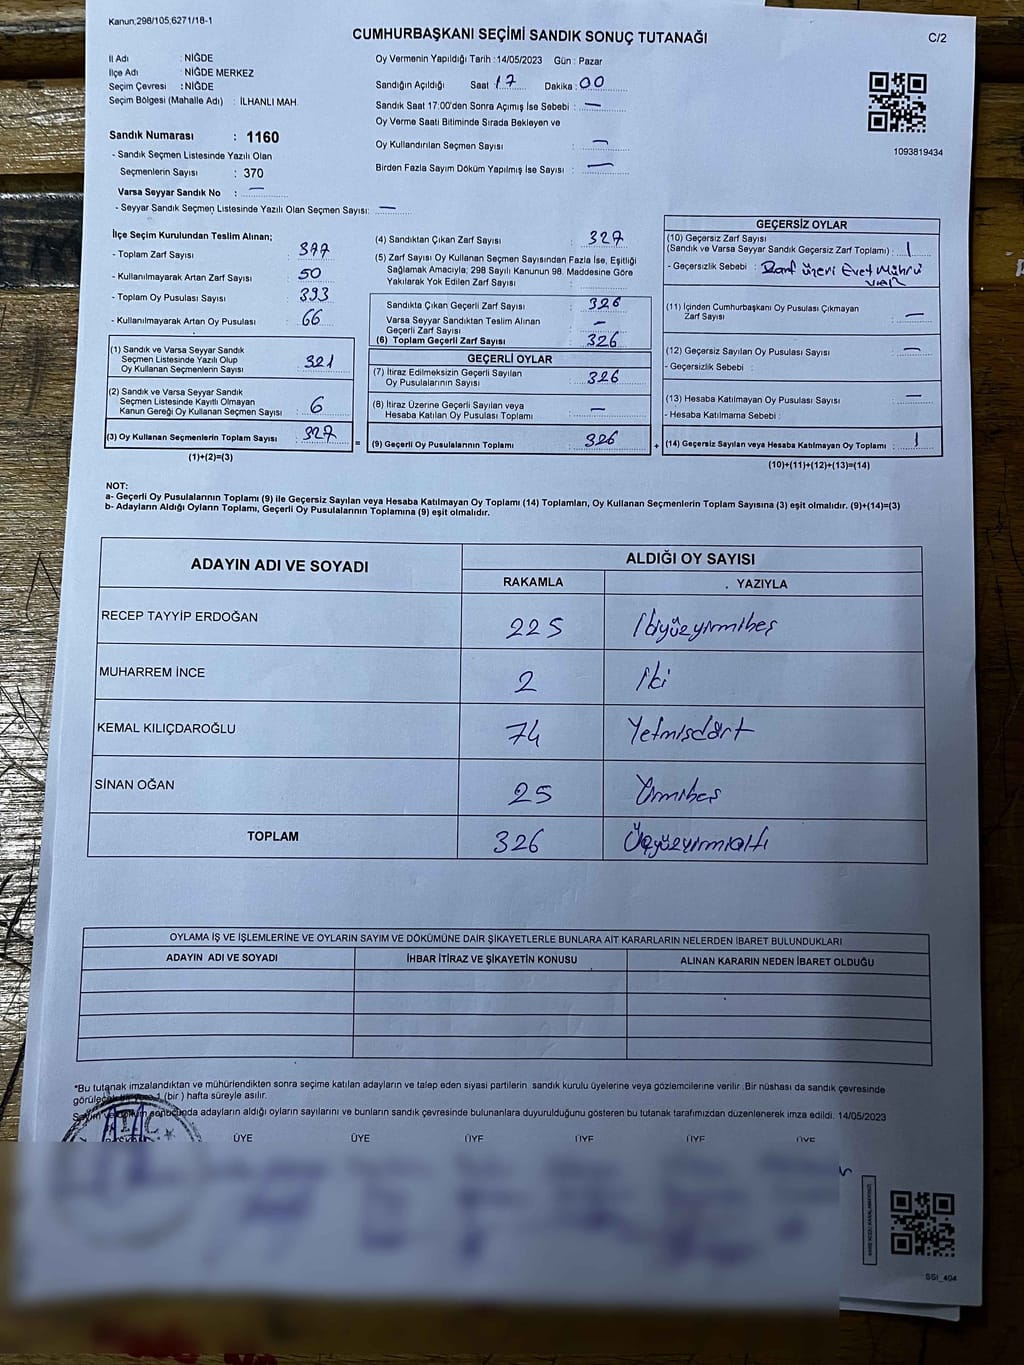 Kanun,298/105,6271/18-1
CUMHURBAŞKANI SEÇİMİ SANDIK SONUÇ TUTANAĞI
C/2
İl Adı : NİĞDE
İlçe Adı : NİĞDE MERKEZ
Seçim Çevresi : NİĞDE
Seçim Bölgesi (Mahalle Adı) : İLHANLI MAH.
Sandık Numarası : 1160
- Sandık Seçmen Listesinde Yazılı Olan
Seçmenlerin Sayısı : 370
Varsa Seyyar Sandık No : —
- Seyyar Sandık Seçmen Listesinde Yazılı Olan Seçmen Sayısı: —
Oy Vermenin Yapıldığı Tarih : 14/05/2023 Gün : Pazar
Sandığın Açıldığı Saat 17 Dakika : 00
Sandık Saat 17:00'den Sonra Açımış İse Sebebi : —
Oy Verme Saati Bitiminde Sırada Bekleyen ve
Oy Kullandırılan Seçmen Sayısı : —
Birden Fazla Sayım Döküm Yapılmış İse Sayısı : —
1093819434
İlçe Seçim Kurulundan Teslim Alınan;
- Toplam Zarf Sayısı : 377
- Kullanılmayarak Artan Zarf Sayısı : 50
- Toplam Oy Pusulası Sayısı : 393
- Kullanılmayarak Artan Oy Pusulası : 66
(1) Sandık ve Varsa Seyyar Sandık
Seçmen Listesinde Yazılı Olup
Oy Kullanan Seçmenlerin Sayısı : 321
(2) Sandık ve Varsa Seyyar Sandık
Seçmen Listesinde Kayıtlı Olmayan
Kanun Gereği Oy Kullanan Seçmen Sayısı : 6
(3) Oy Kullanan Seçmenlerin Toplam Sayısı : 327
(1)+(2)=(3)
=
(4) Sandıktan Çıkan Zarf Sayısı : 327
(5) Zarf Sayısı Oy Kullanan Seçmen Sayısından Fazla İse, Eşitliği
Sağlamak Amacıyla; 298 Sayılı Kanunun 98. Maddesine Göre
Yakılarak Yok Edilen Zarf Sayısı :
Sandıkta Çıkan Geçerli Zarf Sayısı : 326
Varsa Seyyar Sandıktan Teslim Alınan
Geçerli Zarf Sayısı : —
(6) Toplam Geçerli Zarf Sayısı : 326
GEÇERLİ OYLAR
(7) İtiraz Edilmeksizin Geçerli Sayılan
Oy Pusulalarının Sayısı : 326
(8) İtiraz Üzerine Geçerli Sayılan veya
Hesaba Katılan Oy Pusulası Toplamı : —
(9) Geçerli Oy Pusulalarının Toplamı : 326
+
GEÇERSİZ OYLAR
(10) Geçersiz Zarf Sayısı
(Sandık ve Varsa Seyyar Sandık Geçersiz Zarf Toplamı) : 1
- Geçersizlik Sebebi : Zarf üzeri Evet Mührü
var
(11) İçinden Cumhurbaşkanı Oy Pusulası Çıkmayan
Zarf Sayısı : —
(12) Geçersiz Sayılan Oy Pusulası Sayısı : —
- Geçersizlik Sebebi :
(13) Hesaba Katılmayan Oy Pusulası Sayısı : —
- Hesaba Katılmama Sebebi :
(14) Geçersiz Sayılan veya Hesaba Katılmayan Oy Toplamı : 1
(10)+(11)+(12)+(13)=(14)
NOT:
a- Geçerli Oy Pusulalarının Toplamı (9) ile Geçersiz Sayılan veya Hesaba Katılmayan Oy Toplamı (14) Toplamları, Oy Kullanan Seçmenlerin Toplam Sayısına (3) eşit olmalıdır. (9)+(14)=(3)
b- Adayların Aldığı Oyların Toplamı, Geçerli Oy Pusulalarının Toplamına (9) eşit olmalıdır.
ADAYIN ADI VE SOYADI
ALDIĞI OY SAYISI
RAKAMLA YAZIYLA
RECEP TAYYİP ERDOĞAN 225 İkiyüzyirmibeş
MUHARREM İNCE 2 İki
KEMAL KILIÇDAROĞLU 74 Yetmişdört
SİNAN OĞAN 25 Yirmibeş
TOPLAM 326 Üçyüzyirmialtı
OYLAMA İŞ VE İŞLEMLERİNE VE OYLARIN SAYIM VE DÖKÜMÜNE DAİR ŞİKAYETLERLE BUNLARA AİT KARARLARIN NELERDEN İBARET BULUNDUKLARI
ADAYIN ADI VE SOYADI İHBAR İTİRAZ VE ŞİKAYETİN KONUSU ALINAN KARARIN NEDEN İBARET OLDUĞU
*Bu tutanak imzalandıktan ve mühürlendikten sonra seçime katılan adayların ve talep eden siyasi partilerin sandık kurulu üyelerine veya gözlemcilerine verilir. Bir nüshası da sandık çevresinde
1 (bir) hafta süreyle asılır.
sonucunda adayların aldığı oyların sayılarını ve bunların sandık çevresinde bulunanlara duyurulduğunu gösteren bu tutanak tarafımızdan düzenlenerek imza edildi. 14/05/2023
T.C.
ÜYE ÜYE ÜYE ÜYE ÜYE ÜYE
SSI_404